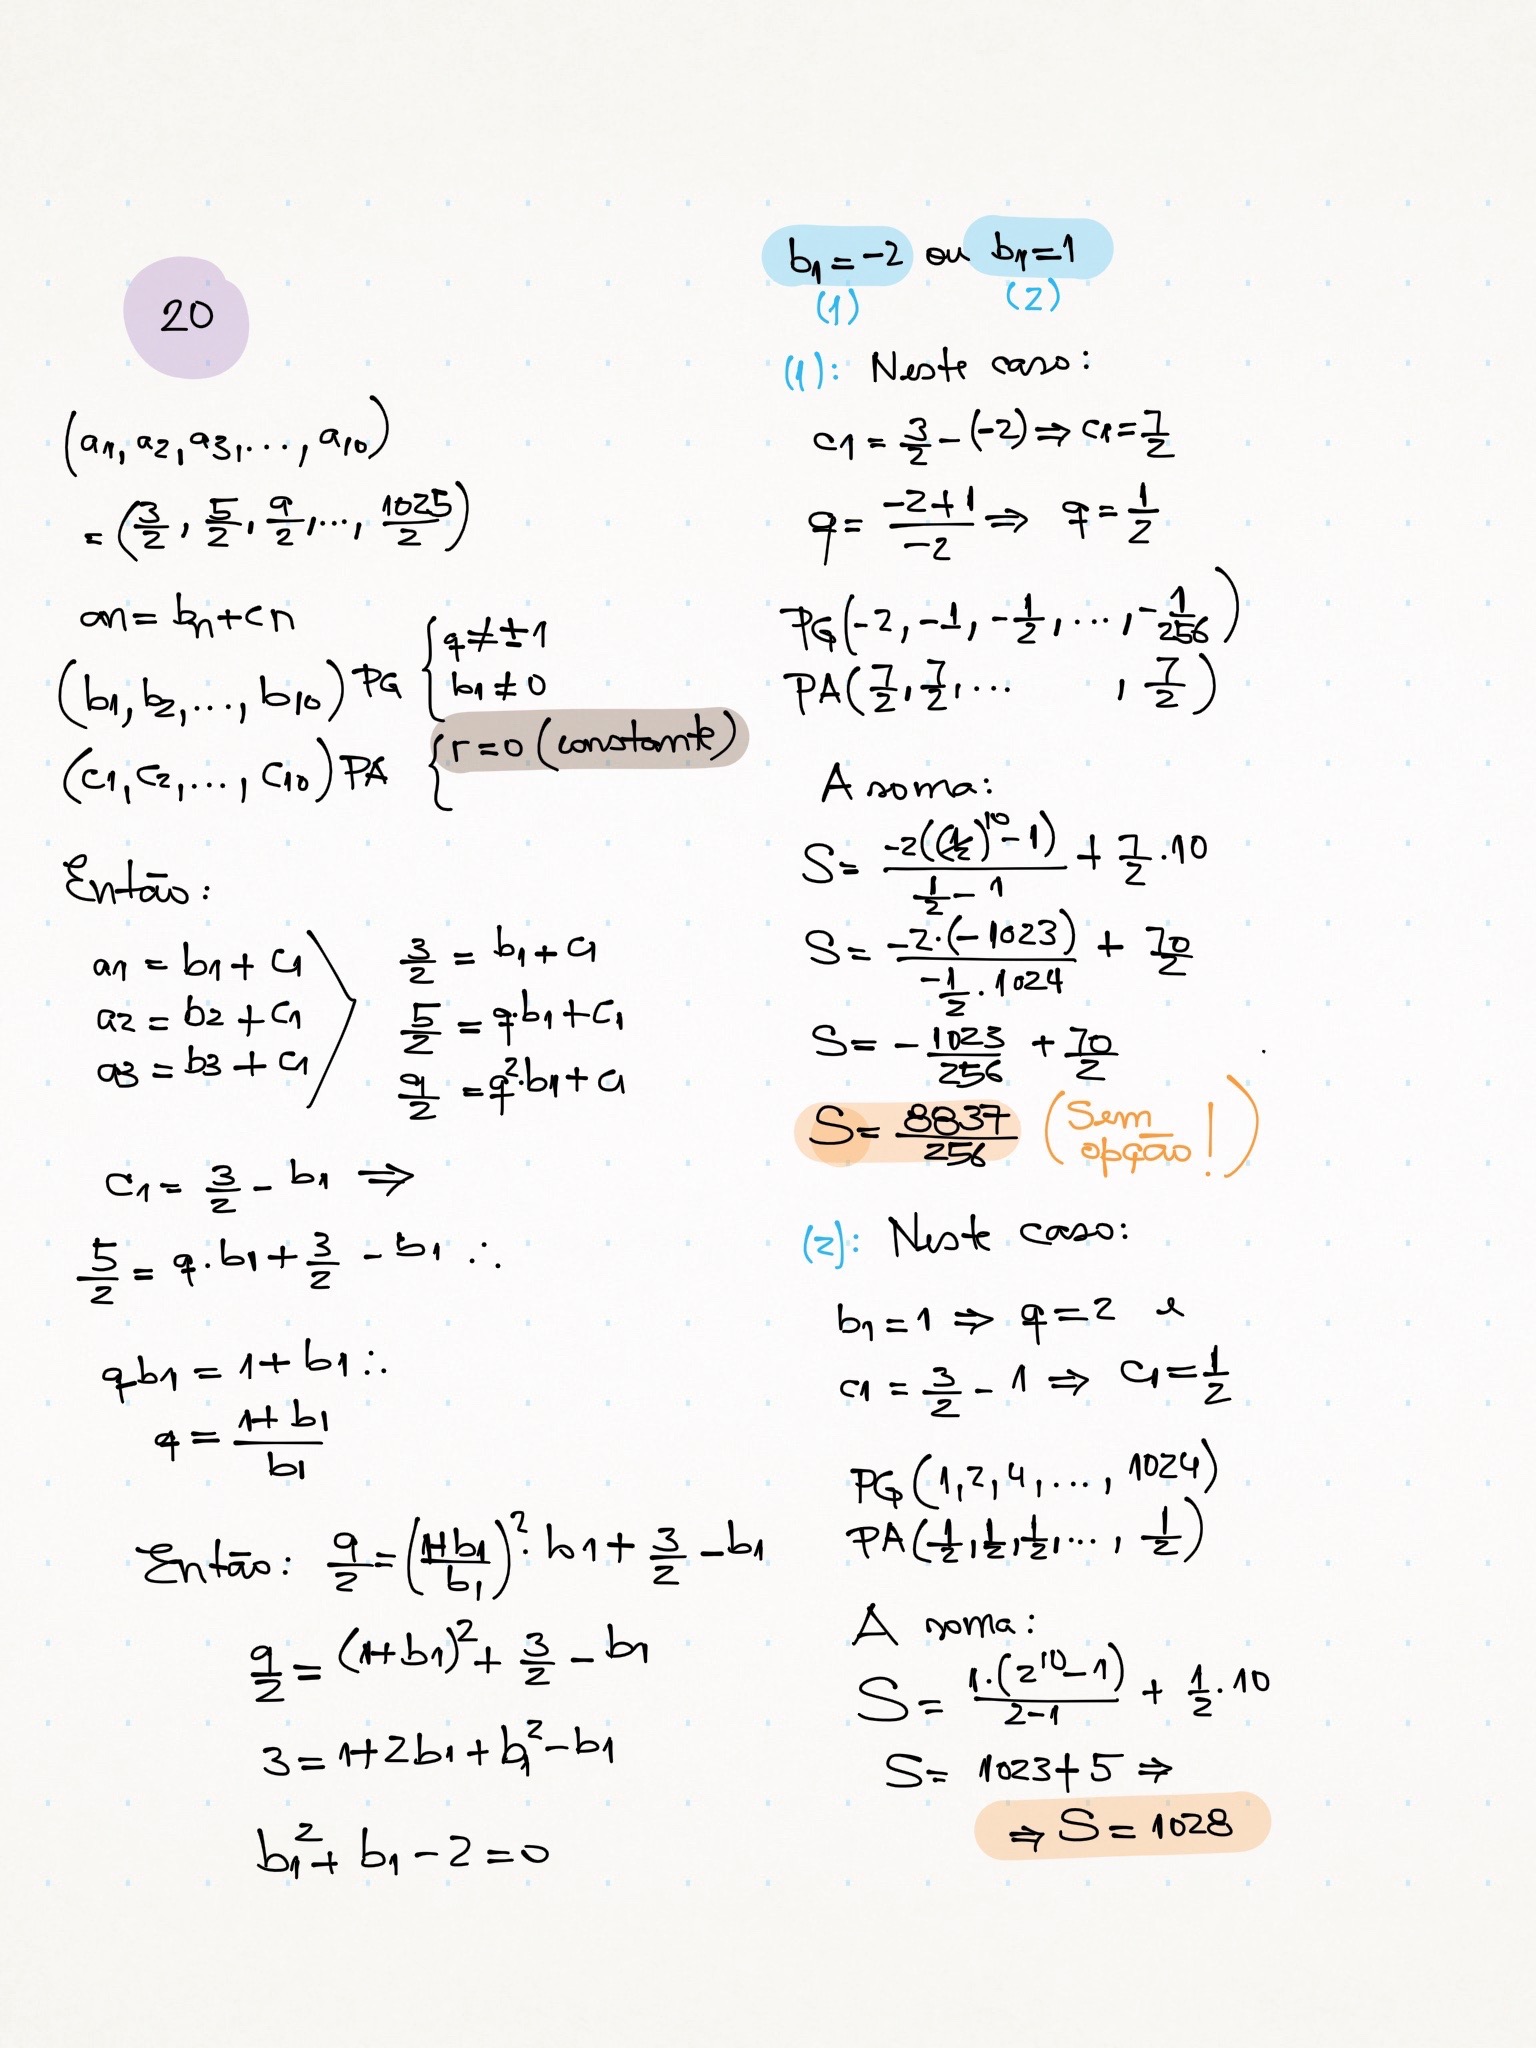 20
(a1, a2, a3, ..., a10)
= (3/2, 5/2, 9/2, ..., 1025/2)
an = bn + cn
(b1, b2, ..., b10) PG { q ≠ ±1
b1 ≠ 0
(c1, c2, ..., c10) PA { r = 0 (constante)
Então:
a1 = b1 + c1
a2 = b2 + c1
a3 = b3 + c1
3/2 = b1 + c1
5/2 = q·b1 + c1
9/2 = q²·b1 + c1
c1 = 3/2 - b1 ⇒
5/2 = q·b1 + 3/2 - b1 ∴
qb1 = 1 + b1 ∴
q = (1 + b1)/b1
Então: 9/2 = ((1+b1)/b1)²·b1 + 3/2 - b1
9/2 = (1+b1)² + 3/2 - b1
3 = 1 + 2b1 + b1² - b1
b1² + b1 - 2 = 0
b1 = -2 ou b1 = 1
(1) (2)
(1): Neste caso:
c1 = 3/2 - (-2) ⇒ c1 = 7/2
q = (-2+1)/-2 ⇒ q = 1/2
PG(-2, -1, -1/2, ..., -1/256)
PA(7/2, 7/2, ... , 7/2)
A soma:
S = -2((1/2)^10 - 1)/(1/2 - 1) + 7/2·10
S = -2·(-1023)/(-1/2·1024) + 70/2
S = -1023/256 + 70/2
S = 8837/256 (Sem
opção!)
(2): Neste caso:
b1 = 1 ⇒ q = 2 e
c1 = 3/2 - 1 ⇒ c1 = 1/2
PG(1, 2, 4, ..., 1024)
PA(1/2, 1/2, 1/2, ..., 1/2)
A soma:
S = 1·(2^10 - 1)/(2-1) + 1/2·10
S = 1023 + 5 ⇒
⇒ S = 1028